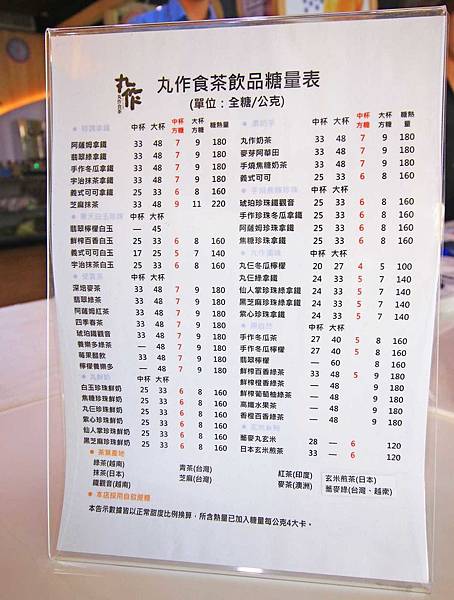 丸作
丸作食茶
丸作食茶飲品糖量表
(單位：全糖/公克)
特調拿鐵 中杯 大杯 中杯方糖 大杯方糖 糖熱量
阿薩姆拿鐵 33 48 7 9 180
翡翠綠拿鐵 33 48 7 9 180
手作冬瓜拿鐵 33 48 7 9 180
宇治抹茶拿鐵 33 48 7 9 180
義式可可拿鐵 25 33 6 8 160
芝麻抹茶 33 48 9 11 220
寒天白玉珍珠 中杯 大杯
翡翠檸檬白玉 — 45
鮮榨百香白玉 25 33 6 8 160
義式可可白玉 17 25 5 7 140
宇治抹茶白玉 25 33 6 8 160
中杯 大杯
深焙麥茶 33 48 7 9 180
翡翠綠茶 33 48 7 9 180
阿薩姆紅茶 33 48 7 9 180
四季春茶 33 48 7 9 180
琥珀鐵觀音 33 48 7 9 180
養樂多綠茶 — 48 9 180
莓果醋飲 33 48 7 9 180
檸檬養樂多 — 48 7 9 180
丸鮮奶 中杯 大杯
白玉珍珠鮮奶 25 33 6 8 160
焦糖珍珠鮮奶 25 33 6 8 160
丸仨珍珠鮮奶 25 33 6 8 160
紫心珍珠鮮奶 25 33 6 8 160
仙人掌珍珠鮮奶 25 33 6 8 160
黑芝麻珍珠鮮奶 25 33 6 8 160
中杯 大杯 中杯方糖 大杯方糖 糖熱量
丸作奶茶 33 48 7 9 180
麥芽阿華田 33 48 7 9 180
手燒焦糖奶茶 33 48 7 9 180
義式可可 25 33 6 8 160
手燒焦糖珍珠 中杯 大杯
琥珀珍珠鐵觀音 25 33 6 8 160
手作珍珠冬瓜拿鐵 25 33 6 8 160
阿薩姆珍珠拿鐵 25 33 6 8 160
焦糖珍珠拿鐵 25 33 6 8 160
中杯 大杯
丸仨冬瓜檸檬 20 27 4 5 100
丸仨綠拿鐵 24 33 5 7 140
仙人掌珍珠綠拿鐵 24 33 5 7 140
黑芝麻珍珠綠拿鐵 24 33 5 7 140
紫心珍珠拿鐵 24 33 5 7 140
中杯 大杯
手作冬瓜茶 27 40 5 8 160
手作冬瓜檸檬 27 40 5 8 160
翡翠檸檬 — 60 8 160
鮮榨百香綠茶 33 48 5 9 180
鮮榨橙香綠茶 — 48 9 180
鮮榨葡萄柚綠茶 — 48 9 180
高纖水果茶 — 48 9 180
香橙百香綠茶 — 48 9 180
玄米系列 中杯 大杯
蕎麥丸玄米 28 — 6 120
日本玄米煎茶 33 — 6 120
茶葉產地
綠茶(越南) 青茶(台灣) 紅茶(印度) 玄米煎茶(日本)
抹茶(日本) 芝麻(台灣) 麥茶(澳洲) 蕎麥綠(台灣、越南)
鐵觀音(越南)
本店採用自砍蔗糖
本告示數據皆以正常甜度比例換算，所含熱量已加入糖量每公克4大卡。